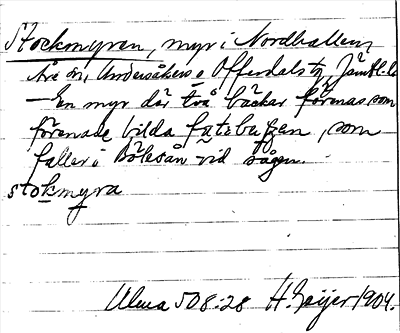 Stockmyren, myr i Nordhallen,
Åre sn, Undersåkers o Offerdals tg, Jämtl. l.
— En myr där två bäckar förenas, som
förenade bilda , som
faller i vid sågen.
stokmyra
Ulma 508:28 H. Geijer 1904.